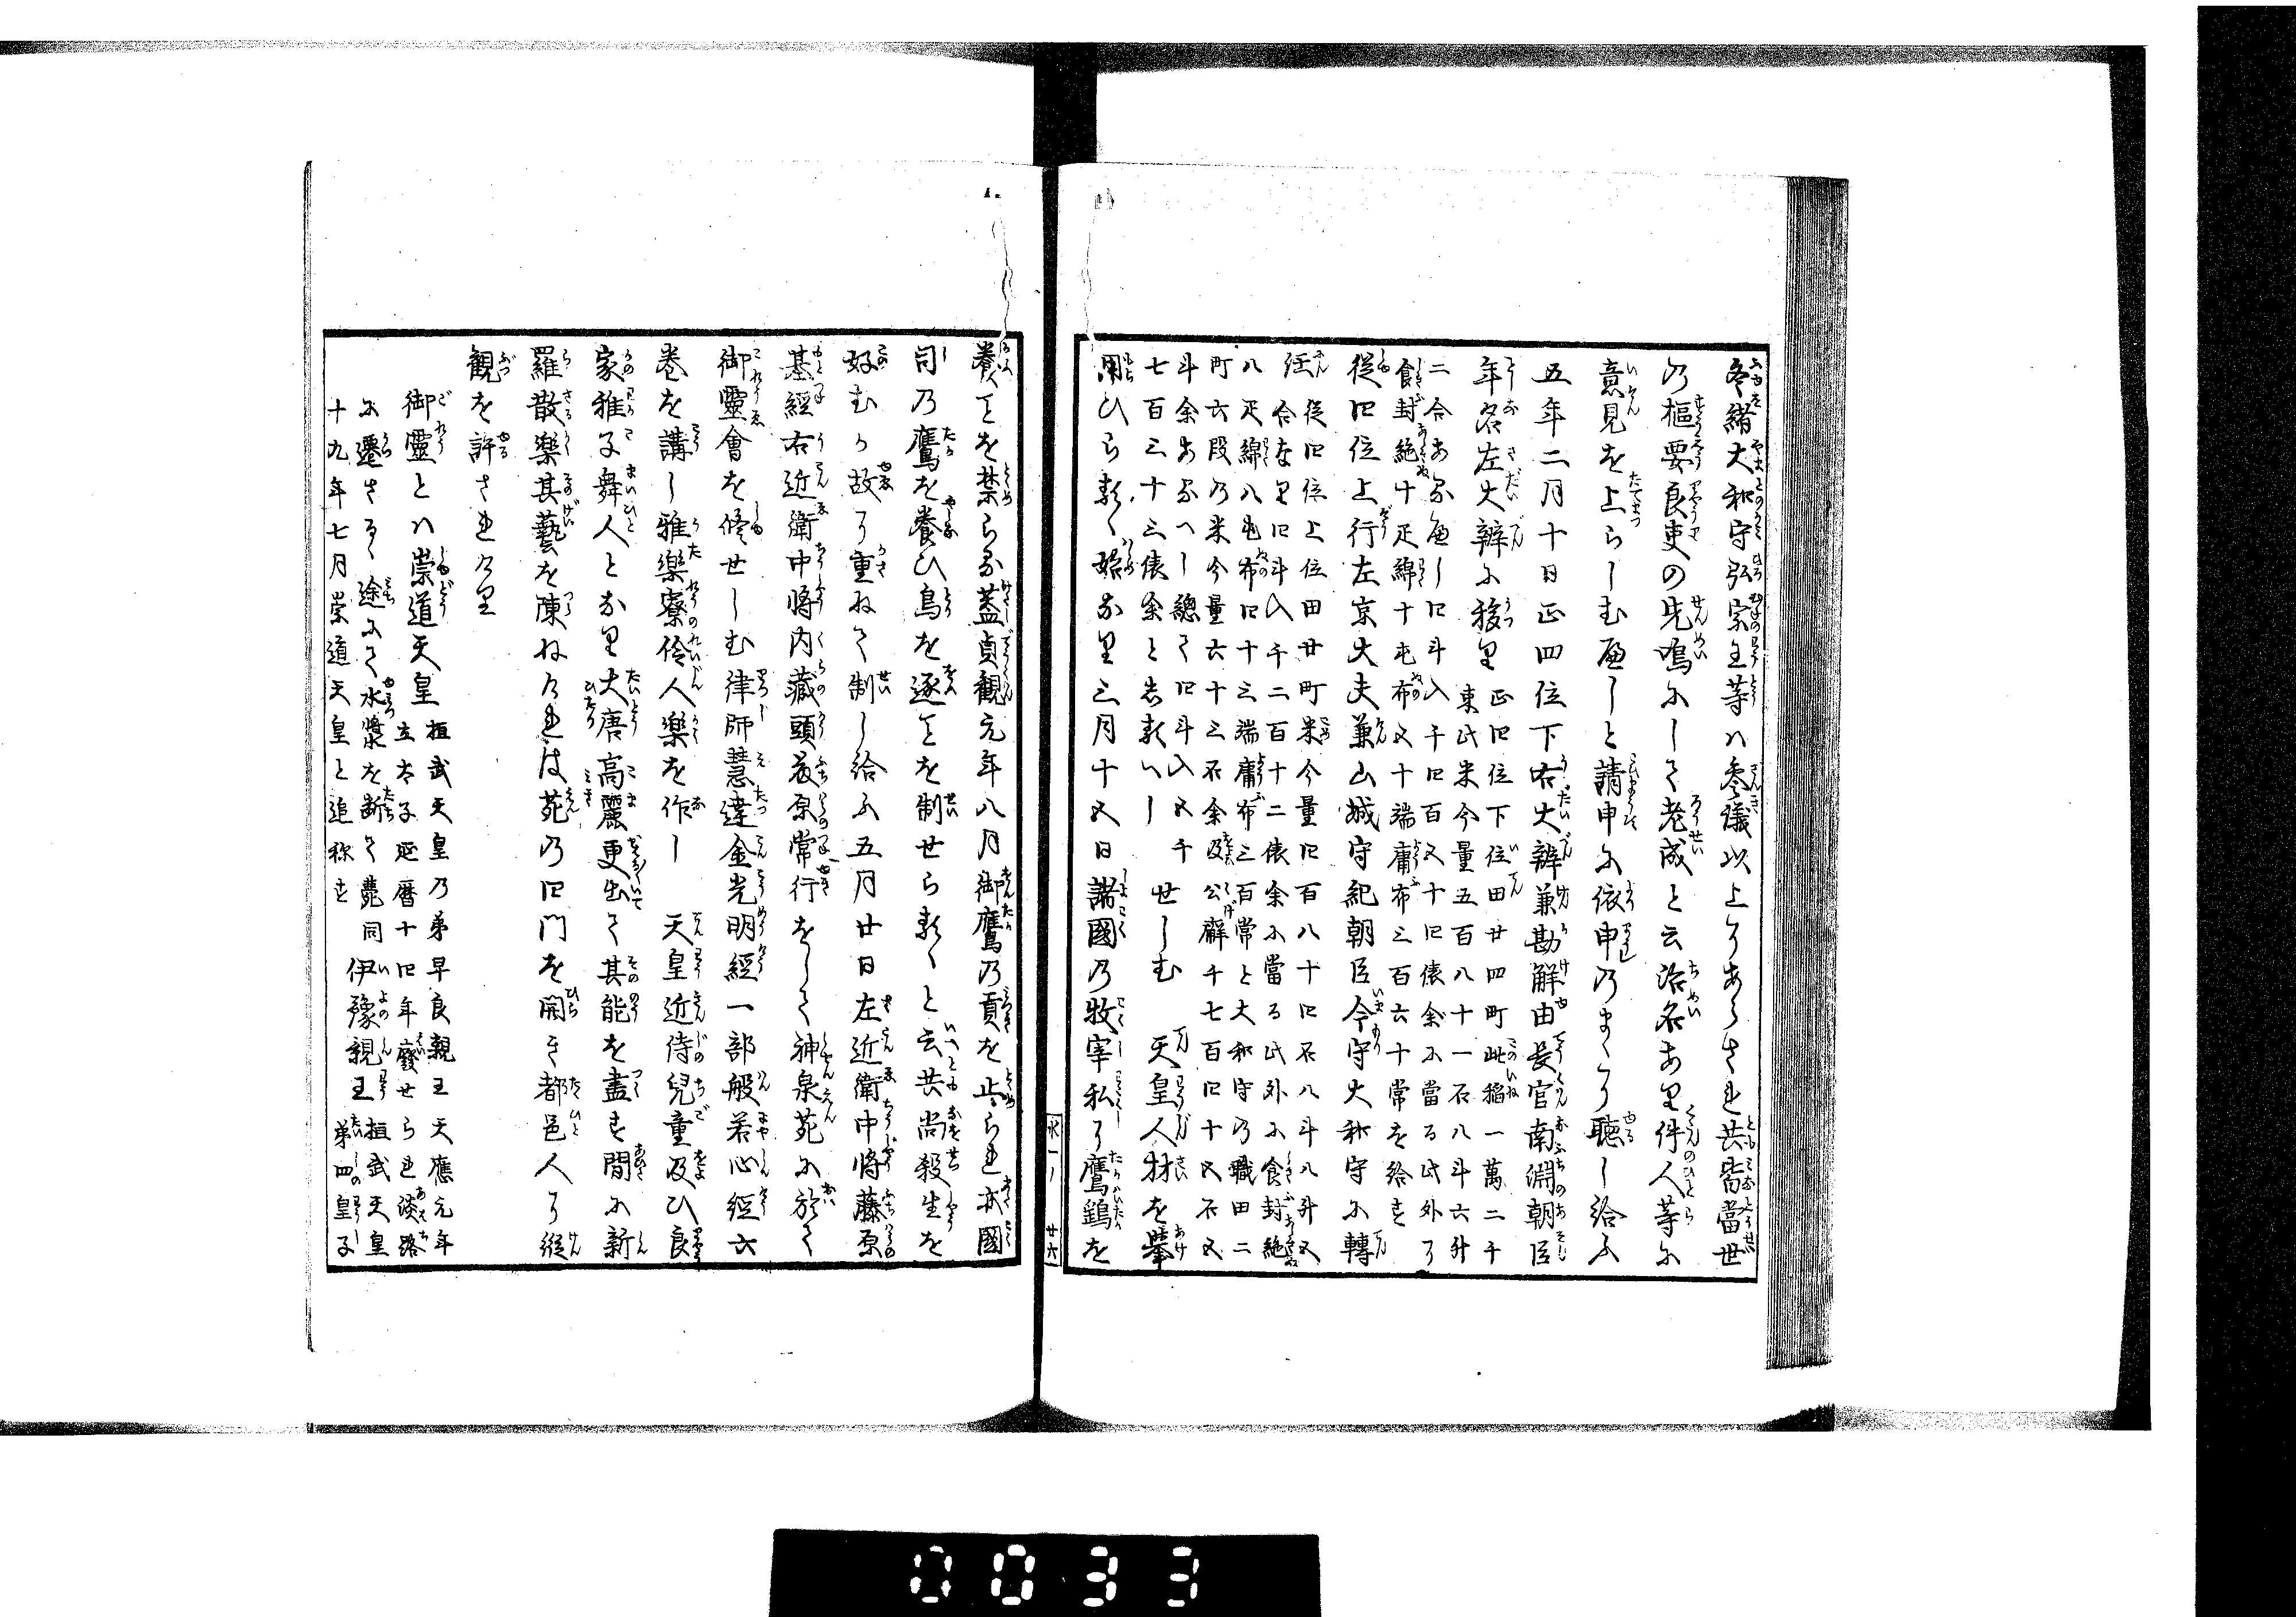 冬緒大和守弘宗王等ハ參議以上にあらされ共皆當世
乃樞要良吏の先鳴にして老成と云治名あり件人等に
意見を上らしむ應しと請申に依申乃まゝに聴し給ふ
五年二月十日正四位下右大辨兼勘解由長官南淵朝臣
年名左大辨に移り
正四位下位田廿四町此稲一萬二千
東氏米今量五百八十一石八斗六升
二合あるへし四斗入千四百五十四俵余に當る此外に
食封絁十疋綿十屯布五十端庸布三百六十常を給す
從四位上行左京大夫兼山城守紀朝臣今守大和守に轉
従四位上位田廿町米今量四百八十四石八斗八升五
合なり四斗入千二百十二俵余に當る此外に食封絁
八疋綿八屯布四十三端庸布三百常と大和守乃職田二
町六段乃米今量六十三石余及公廨千七百四十五石五
斗余あるへし總て四斗入五千
七百三十三俵余と志るへし
せしむ 天皇人材を擧
用ひらるゝ始なり三月十五日諸國乃牧宰私に鷹鷂を
養ことを禁らる蓋貞觀元年八月御鷹乃貢を止られ亦國
司乃鷹を養ひ鳥を逐ことを制せらるゝと云共尚殺生を
好むか故に重ねて制し給ふ五月廿日左近衛中將藤原
基經右近衛中將内藏頭藤原常行をして神泉苑に於て
御靈會を修せしむ律師慧達金光明經一部般若心經六
巻を講し雅樂寮伶人楽を作し 天皇近侍兒童及ひ良
家雅子舞人となり大唐高麗更出て其能を盡す間に新
羅散樂其藝を陳ねけれは苑乃四門を開き都邑人に縦
觀を許されけり
御靈とハ崇道天皇
桓武天皇乃弟早良親王天應元年
立太子延暦十四年廢せられ淡路
に遷さるゝ途にて水漿を断て薨同
十九年七月崇道天皇と追称す
伊豫親王
桓武天皇
第四皇子
水一ノ 廿六
0033